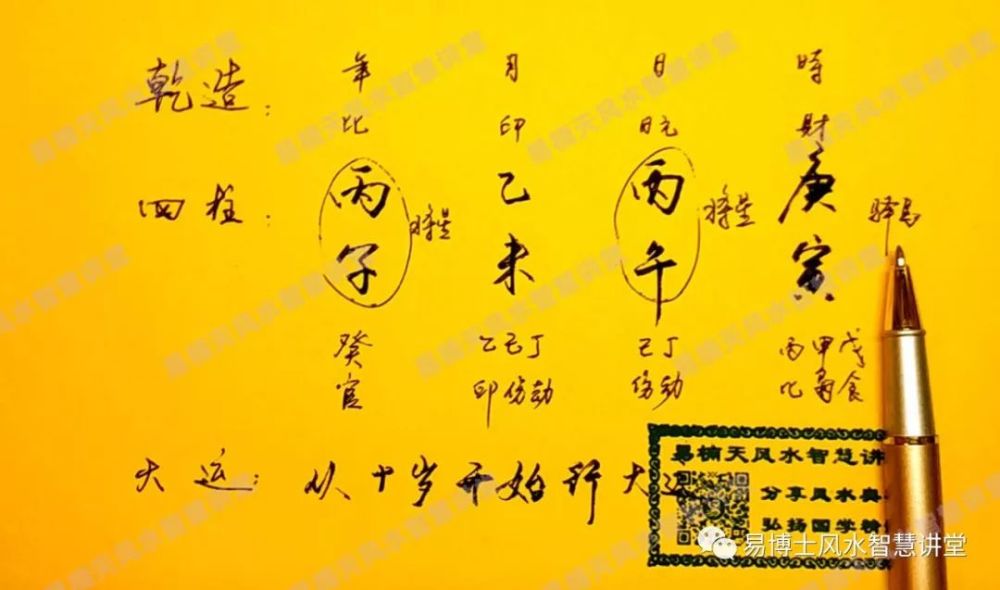 乾造： 年 月 日 時
比 印 日元 財
四柱： 丙 乙 丙 庚
將星 將星 驿馬
子 未 午 寅
癸 乙己丁 己丁 丙甲戊
官 印伤劫 伤劫 比 食
大运：从十岁开始行大运
易楠天风水智慧讲
分享风水奥
弘扬国学精
易博士风水智慧讲堂
易楠天风水智慧讲堂